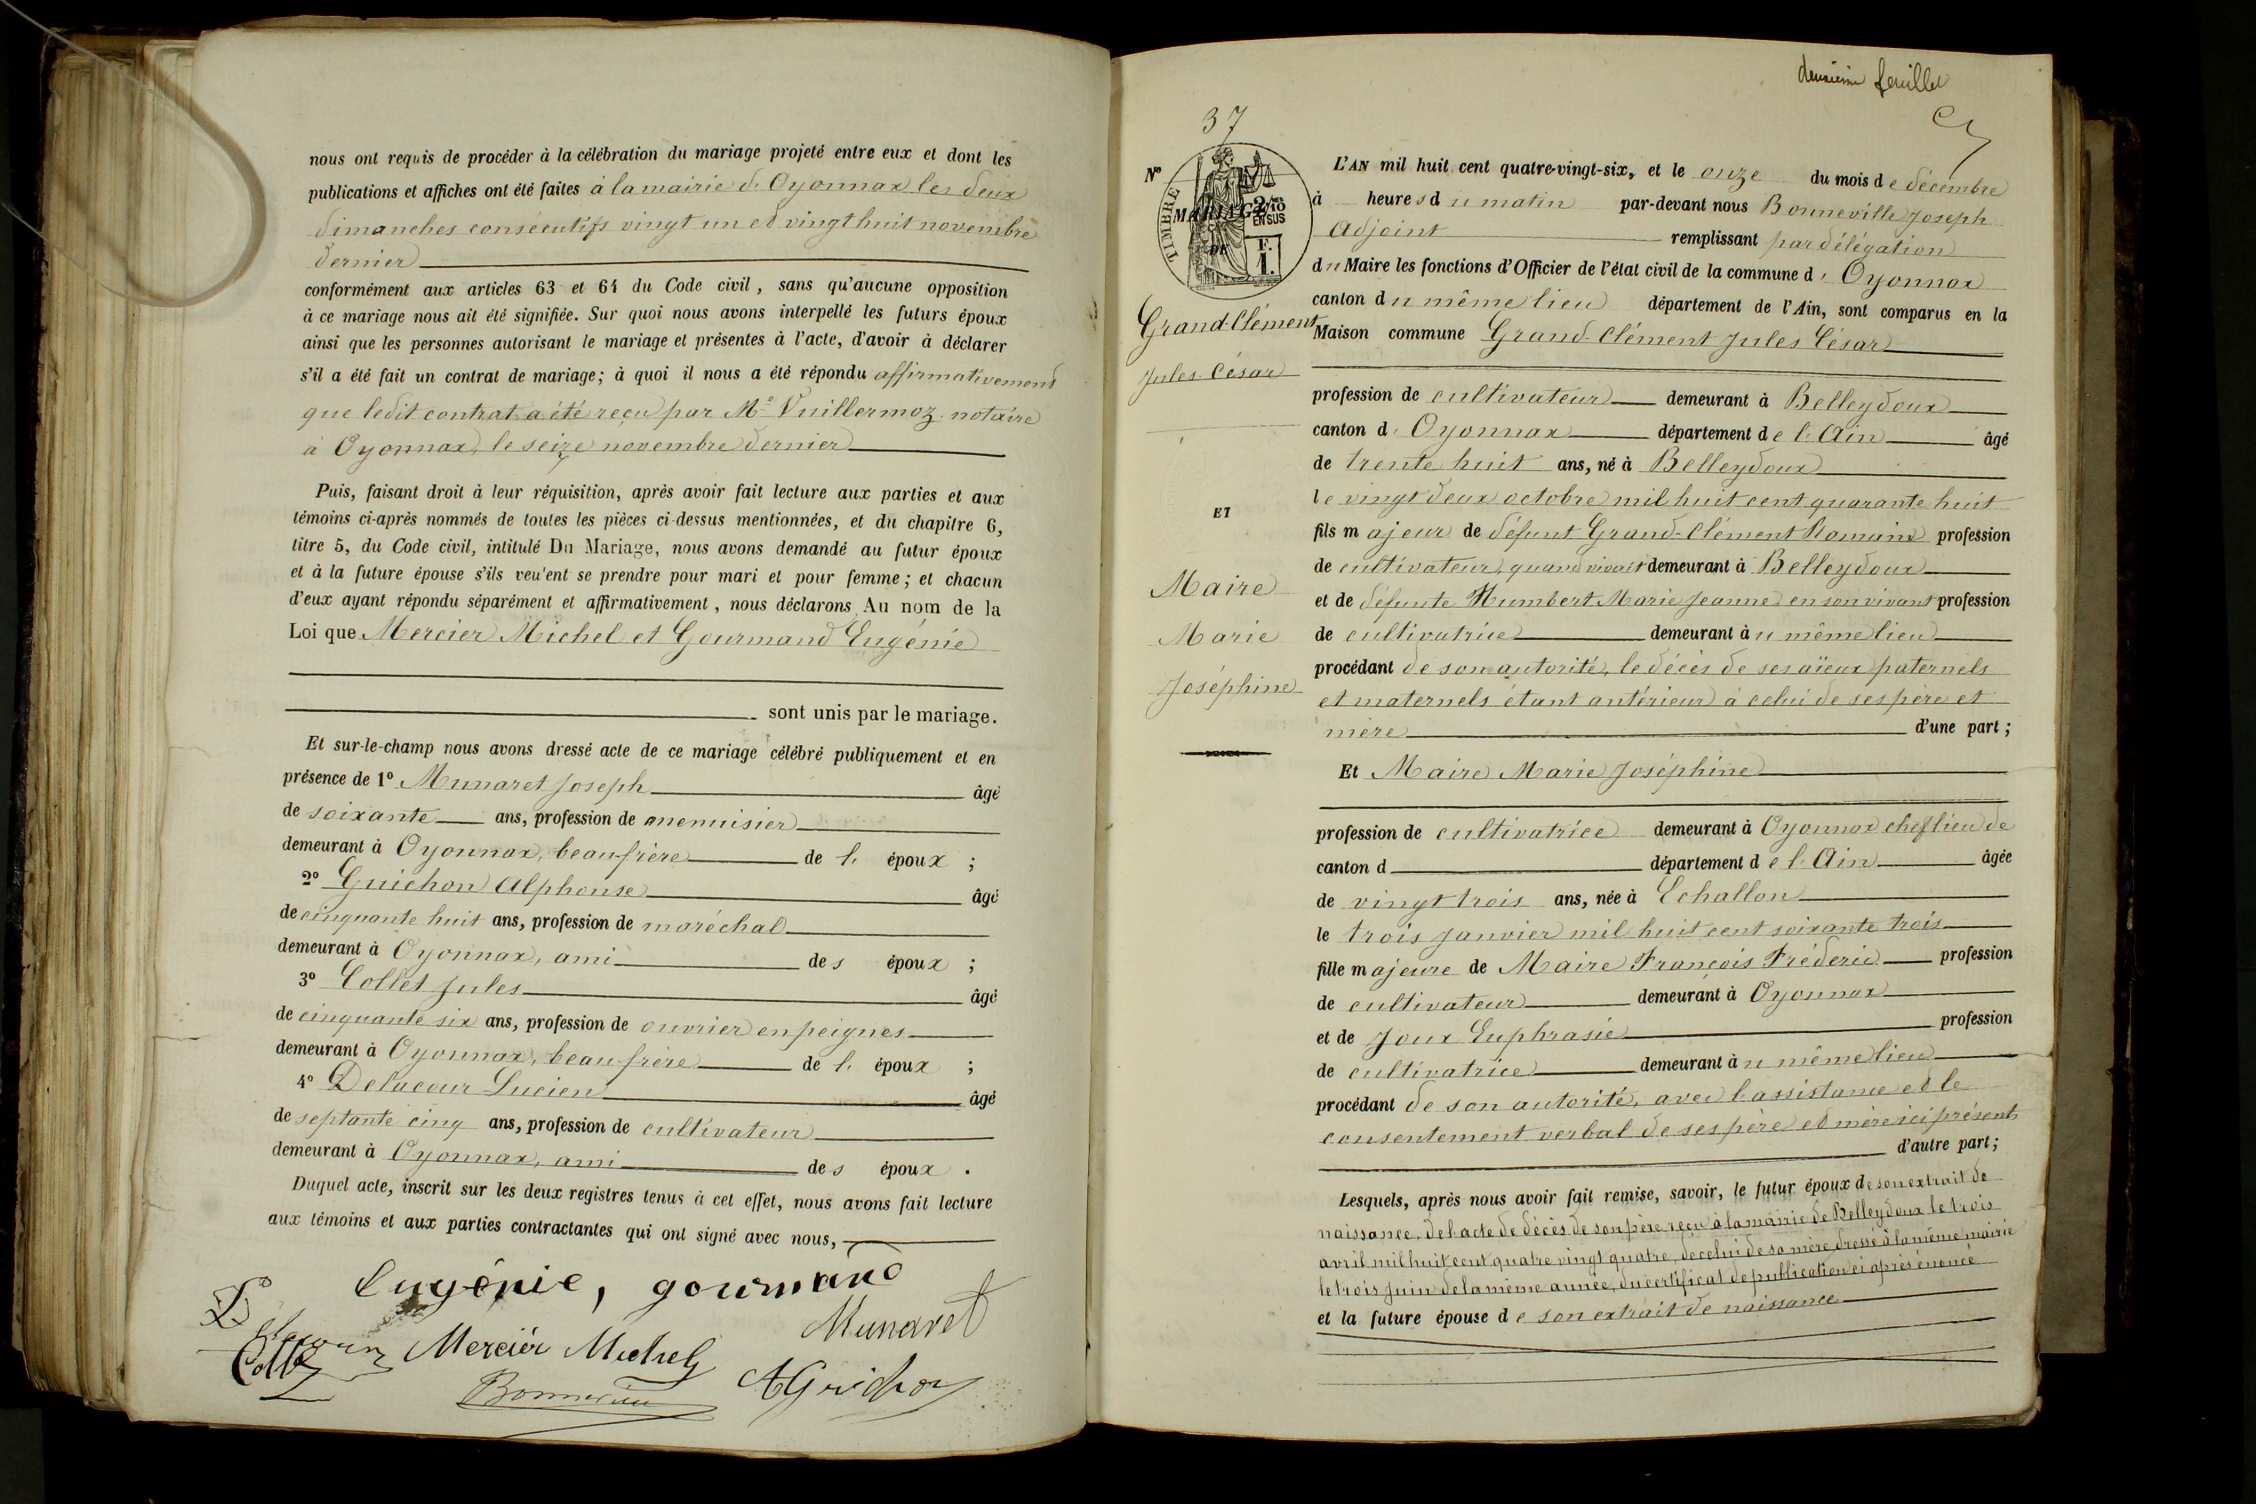 nous ont requis de procéder à la célébration du mariage projeté entre eux et dont les
publications et affiches ont été faites à la mairie d'Oyonnax les deux
dimanches consécutifs vingt un et vingt huit novembre
dernier
conformément aux articles 63 et 64 du Code civil, sans qu'aucune opposition
à ce mariage nous ait été signifiée. Sur quoi nous avons interpellé les futurs époux
ainsi que les personnes autorisant le mariage et présentes à l'acte, d'avoir à déclarer
s'il a été fait un contrat de mariage; à quoi il nous a été répondu affirmativement
que ledit contrat a été reçu par Me Vuillermoz notaire
à Oyonnax, le seize novembre dernier
Puis, faisant droit à leur réquisition, après avoir fait lecture aux parties et aux
témoins ci-après nommés de toutes les pièces ci-dessus mentionnées, et du chapitre 6,
titre 5, du Code civil, intitulé Du Mariage, nous avons demandé au futur époux
et à la future épouse s'ils veulent se prendre pour mari et pour femme; et chacun
d'eux ayant répondu séparément et affirmativement, nous déclarons Au nom de la
Loi que Mercier Michel et Gourmand Eugénie
sont unis par le mariage.
Et sur-le-champ nous avons dressé acte de ce mariage célébré publiquement et en
présence de 1º Munaret Joseph âgé
de soixante ans, profession de menuisier
demeurant à Oyonnax, beau-frère de l' époux ;
2º Guichon Alphonse âgé
de cinquante huit ans, profession de maréchal
demeurant à Oyonnax, ami des époux ;
3º Collet Jules âgé
de cinquante six ans, profession de ouvrier en peignes
demeurant à Oyonnax, beau-frère de l' époux ;
4º Delacour Lucien âgé
de septante cinq ans, profession de cultivateur
demeurant à Oyonnax, ami des époux .
Duquel acte, inscrit sur les deux registres tenus à cet effet, nous avons fait lecture
aux témoins et aux parties contractantes qui ont signé avec nous,
Eugénie, gourmand
Delacour Mercier Michel Munaret
Collet AGuichon
deuxième feuillet
37
Nº
TIMBRE
MARIAGE
2/10 EN SUS
DE
F.
1.
Grand-Clément
Jules César
ET
Maire
Marie
Joséphine
L'AN mil huit cent quatre-vingt-six, et le onze du mois de décembre
à heures du matin par-devant nous Bonneville Joseph
Adjoint remplissant par délégation
du Maire les fonctions d'Officier de l'état civil de la commune d' Oyonnax
canton du même lieu département de l'Ain, sont comparus en la
Maison commune Grand-Clément Jules César
profession de cultivateur demeurant à Belleydoux
canton d' Oyonnax département de l'Ain âgé
de trente huit ans, né à Belleydoux
le vingt deux octobre mil huit cent quarante huit
fils majeur de défunt Grand-Clément Romain profession
de cultivateur, quand vivait demeurant à Belleydoux
et de défunte Humbert Marie Jeanne en son vivant profession
de cultivatrice demeurant au même lieu
procédant de son autorité, le décès de ses aïeux paternels
et maternels étant antérieur à celui de ses père et
mère d'une part;
Et Maire Marie Joséphine
profession de cultivatrice demeurant à Oyonnax chef lieu de
canton d département de l'Ain âgée
de vingt trois ans, née à Echallon
le trois janvier mil huit cent soixante trois
fille majeure de Maire François Fréderic profession
de cultivateur demeurant à Oyonnax
et de Joux Euphrasie profession
de cultivatrice demeurant au même lieu
procédant de son autorité, avec l'assistance et le
consentement verbal de ses père et mère ici présents
d'autre part;
Lesquels, après nous avoir fait remise, savoir, le futur époux de son extrait de
naissance, de l'acte de décès de son père reçu à la mairie de Belleydoux le trois
avril mil huit cent quatre vingt quatre, de celui de sa mère dressé à la même mairie
le trois juin de la même année, du certificat de publication ci après énoncé
et la future épouse de son extrait de naissance